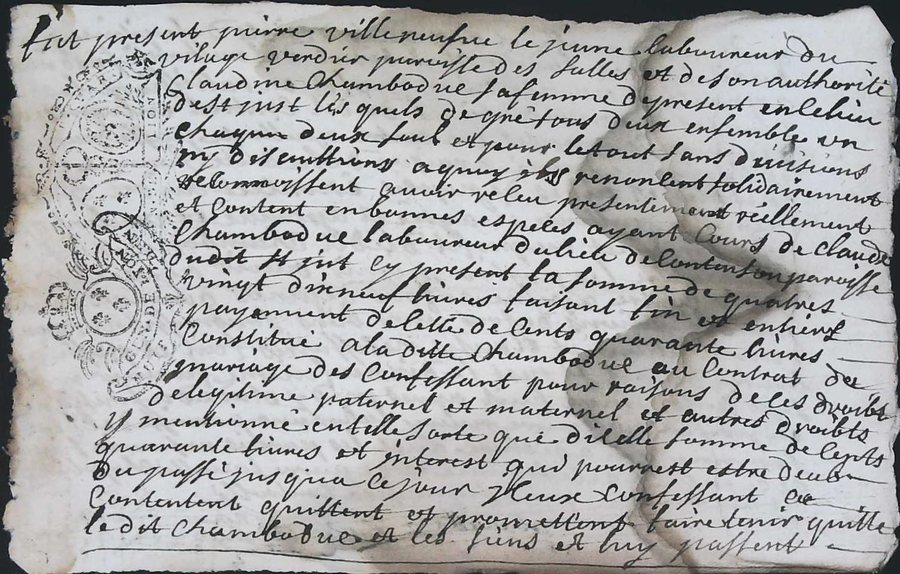 fut present pierre villeneufue le jeune laboureur du
vilage verdier paroisse des salles et de son authorité
Claudine Chambodue sa femme depresent en le lieu
dest just lesquels de gré tous deux ensemble un
chaqun deux seul et pour le tout sans diuisions
ny discuttions aquoy ils renoncent solidairement
reconnoissent auoir releu presentement réellement
et Content en bonnes espeles ayant Cours de Claude
Chambodue laboureur du lieu de Contenson paroisse
dudit st just Cy present la somme de quatres
vingt dixneuf liures faisant fin et entiers
payement de celle de Cents quarante liures
Constitué a la ditte Chambodue au Contrat de
mariage des Confessant pour raisons de ses droits
de legitime paternel et maternel et autres droibts
y mentionné en telle sorte que dicelle somme de Cents
quarante liures et interest qui pourrest estre deub
du passé jusqua Ce jour Iceux Confessant se
Contentent quittent et promettent faire tenir quitte
le dit Chambodue et les siens et luy passent